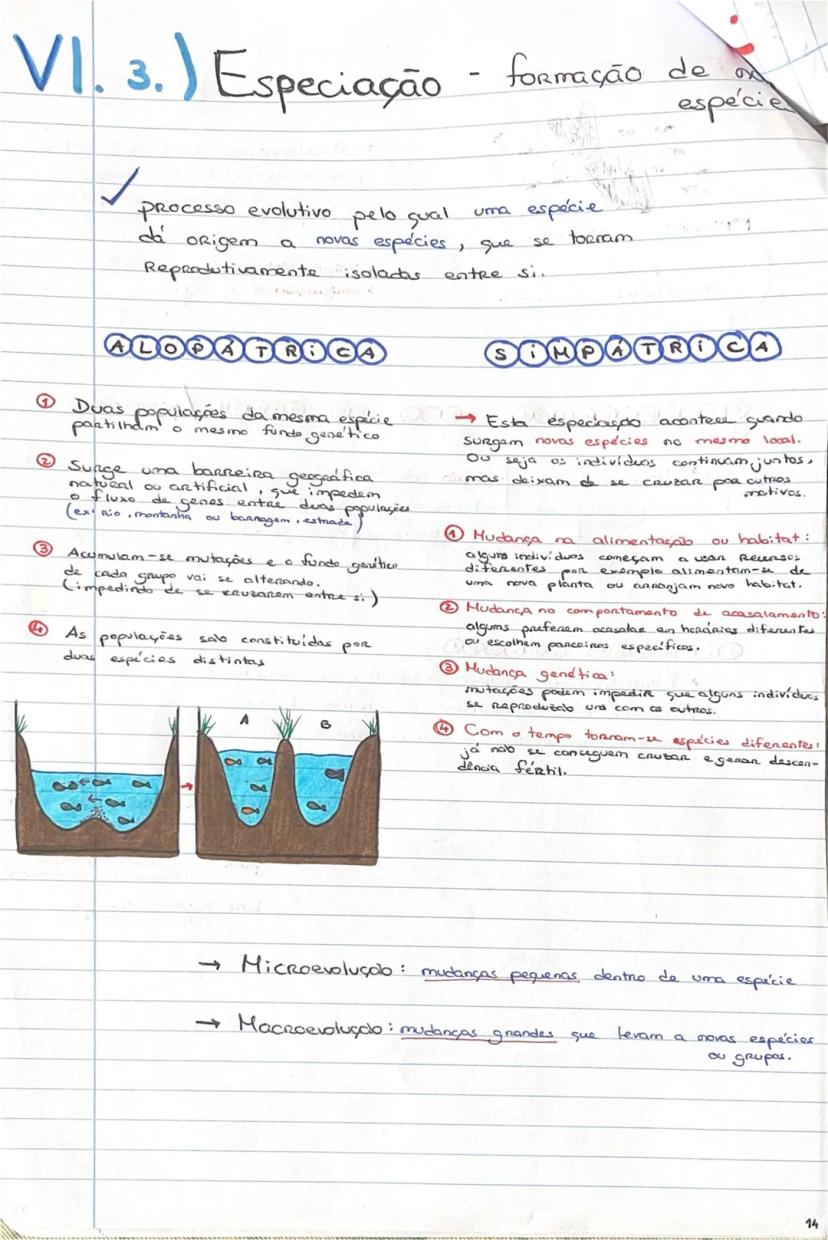 VI. 3.) Especiação - formação de
espécie
processo evolutivo pelo qual uma espécie
dá origem a novas espécies, que se tornam
Reprodutivamente isoladas entre si.
ALOPÁTRiCA
① Duas populações da mesma espécie
partilham o mesmo fundo genético
② Surge uma barreira geográfica
natural ou artificial, que impedem
o fluxo de genes entre duas populações
(ex: Rio, montanha ou barragem, estrada)
③ Acumulam-se mutações e o fundo genético
de cada grupo vai se alterando.
(impedindo de se cruzarem entre si.)
④ As populações são constituídas por
duas espécies distintas
A B
SiMPÁTRiCA
→ Esta especiação acontece quando
surgam novas espécies no mesmo local.
Ou seja os indivíduos continuam juntos,
mas deixam de se cruzar por outros
motivos.
① Mudança na alimentação ou habitat:
alguns indivíduos começam a usar Recursos
diferentes por exemplo alimentam-se de
uma nova planta ou arranjam novo habitat.
② Mudança no comportamento de acasalamento:
alguns preferem acasalar em horários diferentes
ou escolhem parceiros específicos.
③ Mudança genética:
mutações podem impedir que alguns indivíduos
se reproduzão uns com os outros.
④ Com o tempo tornam-se espécies diferentes:
já não se conseguem cruzar e gerar descen-
dência fértil.
→ Microevolução: mudanças pequenas dentro de uma espécie
→ Macroevolução: mudanças grandes que levam a novas espécies
ou grupos.
14